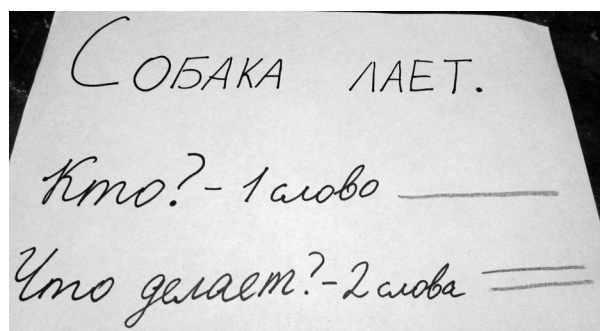 СОБАКА ЛАЕТ.
Кто? - 1 слово
Что делает? - 2 слова